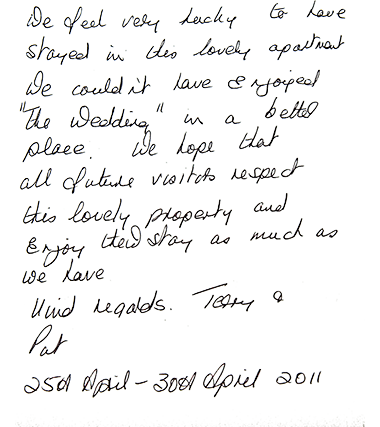 We feel very lucky to have
stayed in this lovely apartment
We couldn't have Enjoyed
"The Wedding" in a better
place. We hope that
all future visitors respect
this lovely property and
Enjoy their stay as much as
we have
Kind regards. Terry &
Pat
25th April - 30th April 2011